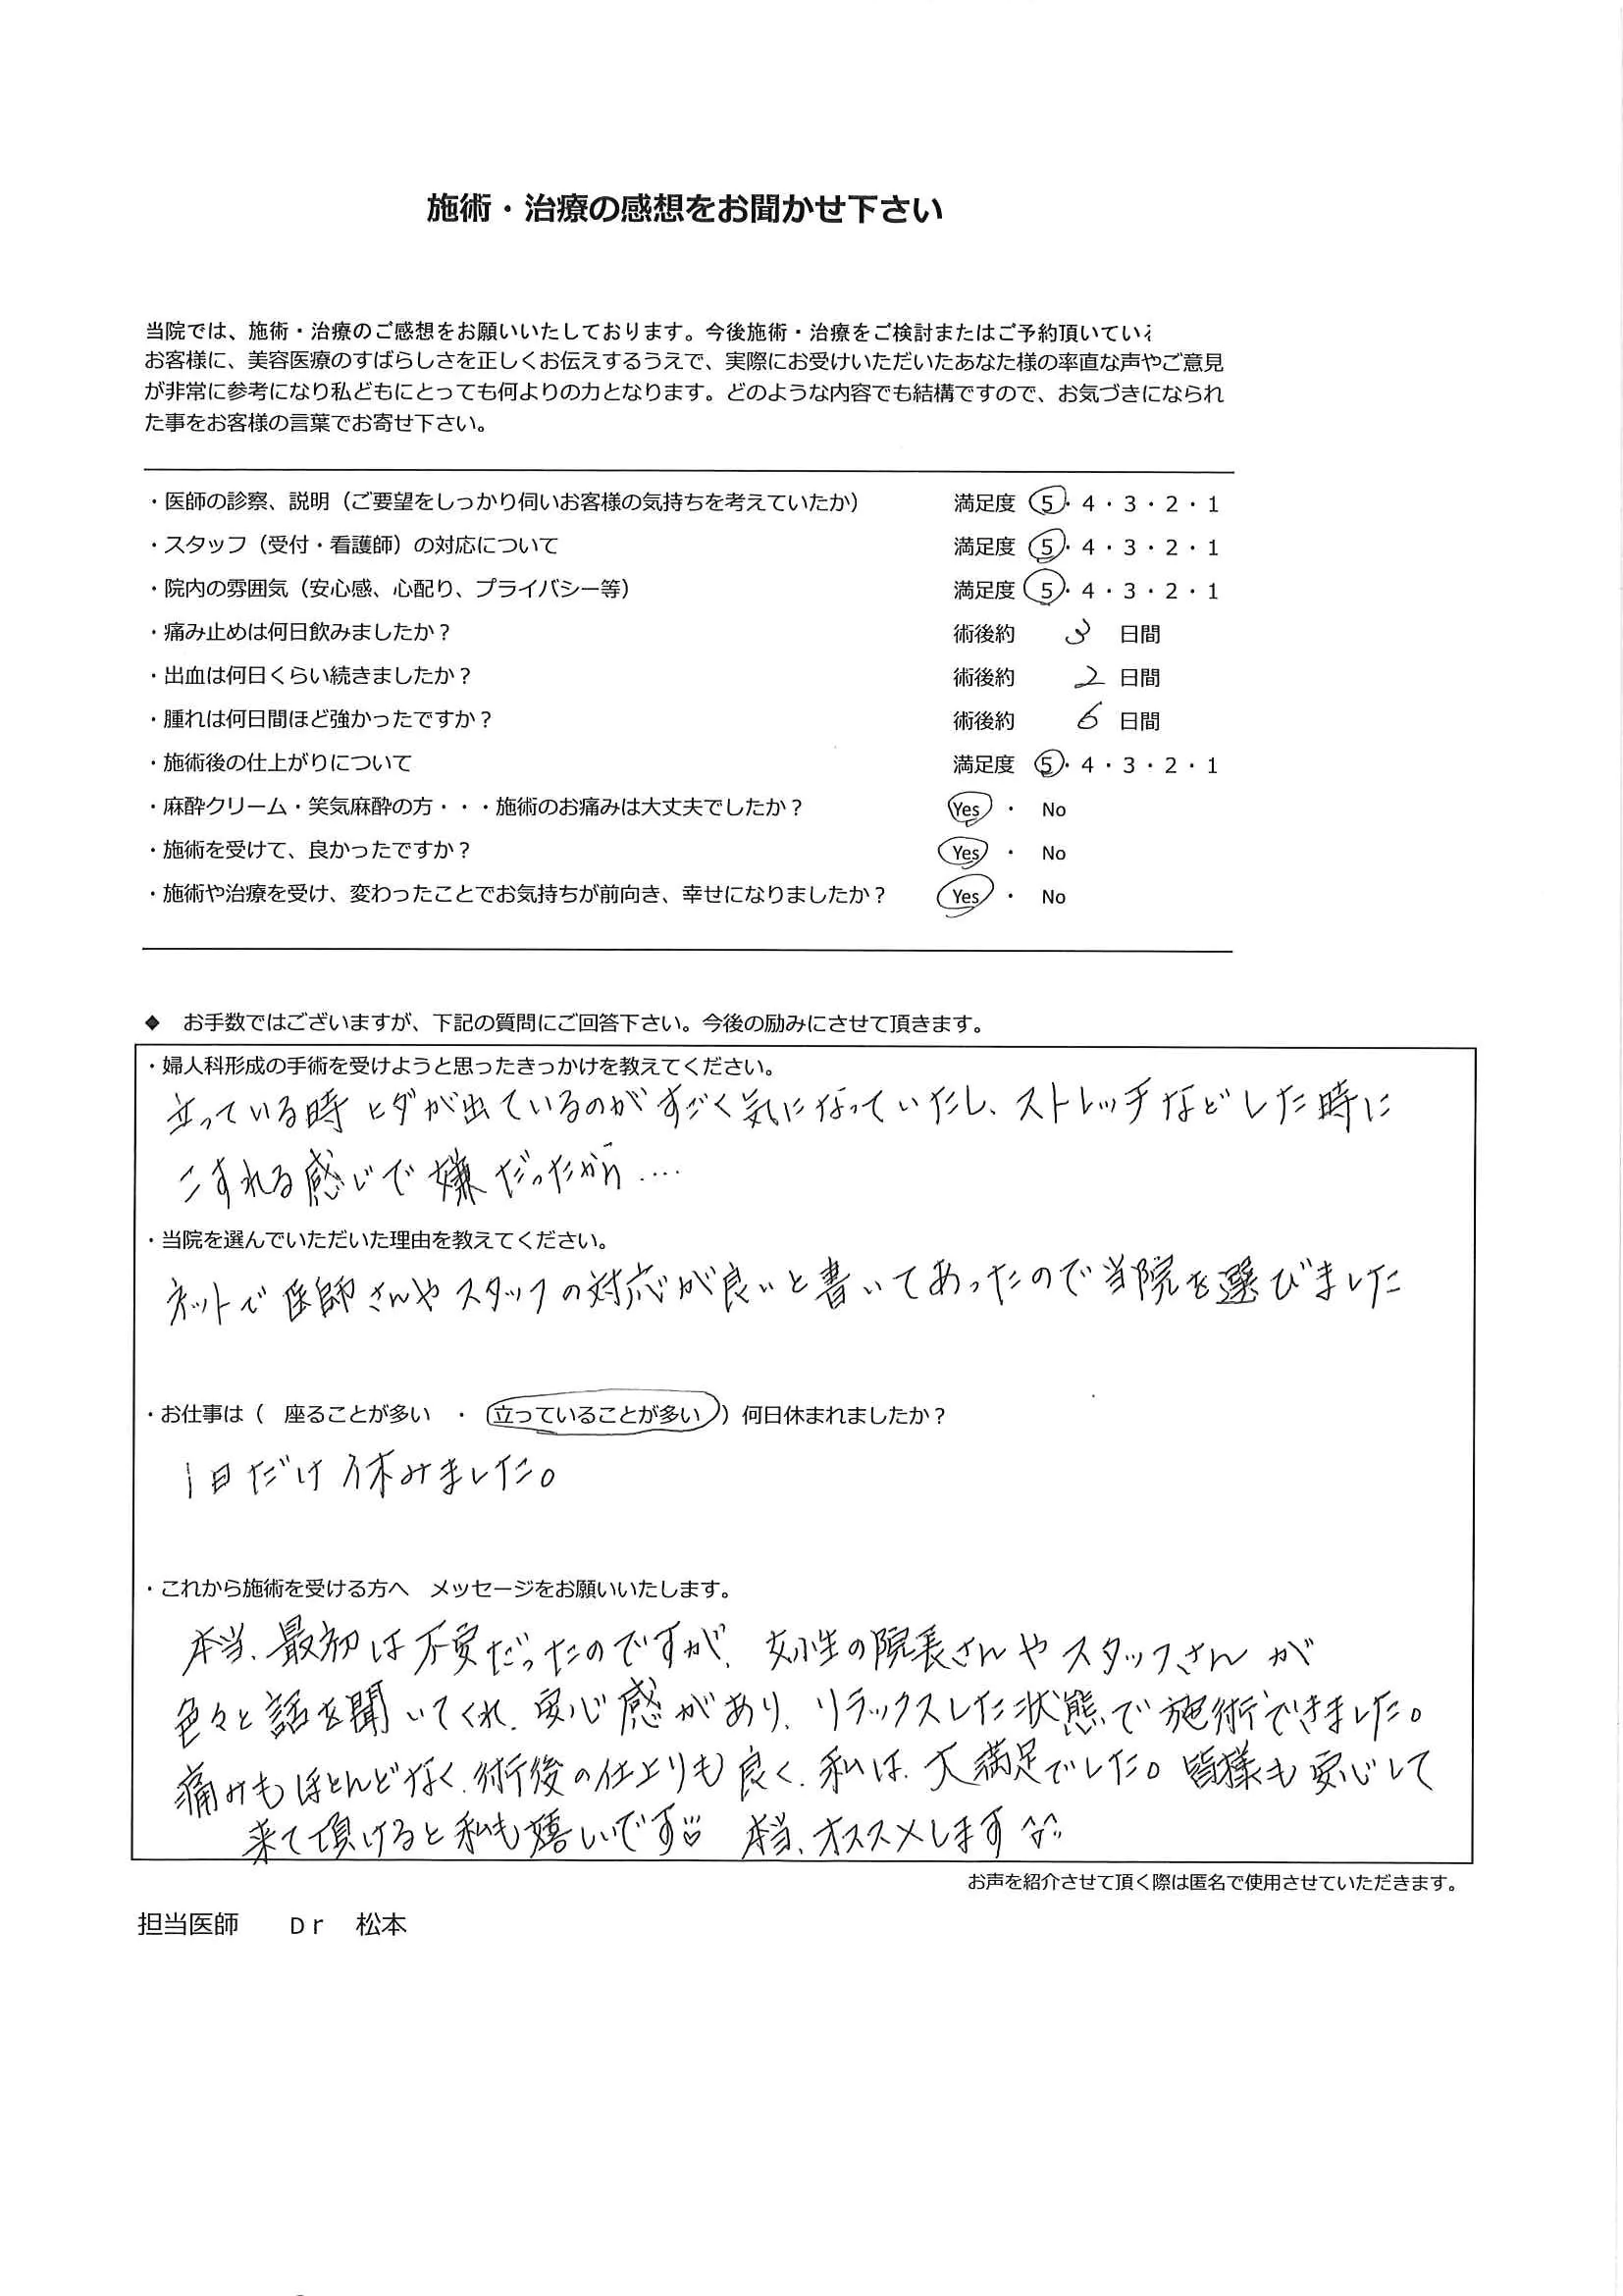 施術・治療の感想をお聞かせ下さい
当院では、施術・治療のご感想をお願いいたしております。今後施術・治療をご検討またはご予約頂いている
お客様に、美容医療のすばらしさを正しくお伝えするうえで、実際にお受けいただいたあなた様の率直な声やご意見
が非常に参考になり私どもにとっても何よりの力となります。どのような内容でも結構ですので、お気づきになられ
た事をお客様の言葉でお寄せ下さい。
・医師の診察、説明（ご要望をしっかり伺いお客様の気持ちを考えていたか） 満足度 5・4・3・2・1
・スタッフ（受付・看護師）の対応について 満足度 5・4・3・2・1
・院内の雰囲気（安心感、心配り、プライバシー等） 満足度 5・4・3・2・1
・痛み止めは何日飲みましたか？ 術後約 3 日間
・出血は何日くらい続きましたか？ 術後約 2 日間
・腫れは何日間ほど強かったですか？ 術後約 6 日間
・施術後の仕上がりについて 満足度 5・4・3・2・1
・麻酔クリーム・笑気麻酔の方・・・施術のお痛みは大丈夫でしたか？ Yes ・ No
・施術を受けて、良かったですか？ Yes ・ No
・施術や治療を受け、変わったことでお気持ちが前向き、幸せになりましたか？ Yes ・ No
◆ お手数ではございますが、下記の質問にご回答下さい。今後の励みにさせて頂きます。
・婦人科形成の手術を受けようと思ったきっかけを教えてください。
立っている時ヒダが出ているのがすごく気になっていたし、ストレッチなどした時に
こすれる感じで嫌だったから....
・当院を選んでいただいた理由を教えてください。
ネットで医師さんやスタッフの対応が良いと書いてあったので当院を選びました
・お仕事は（ 座ることが多い ・ 立っていることが多い ）何日休まれましたか？
1日だけ休みました。
・これから施術を受ける方へ メッセージをお願いいたします。
本当、最初は不安だったのですが、女性の院長さんやスタッフさんが
色々と話を聞いてくれ、安心感があり、リラックスした状態で施術できました。
痛みもほとんどなく、術後の仕上りも良く、私は、大満足でした。皆様も安心して
来て頂けると私も嬉しいです♡ 本当、オススメします^^
お声を紹介させて頂く際は匿名で使用させていただきます。
担当医師 Dr 松本